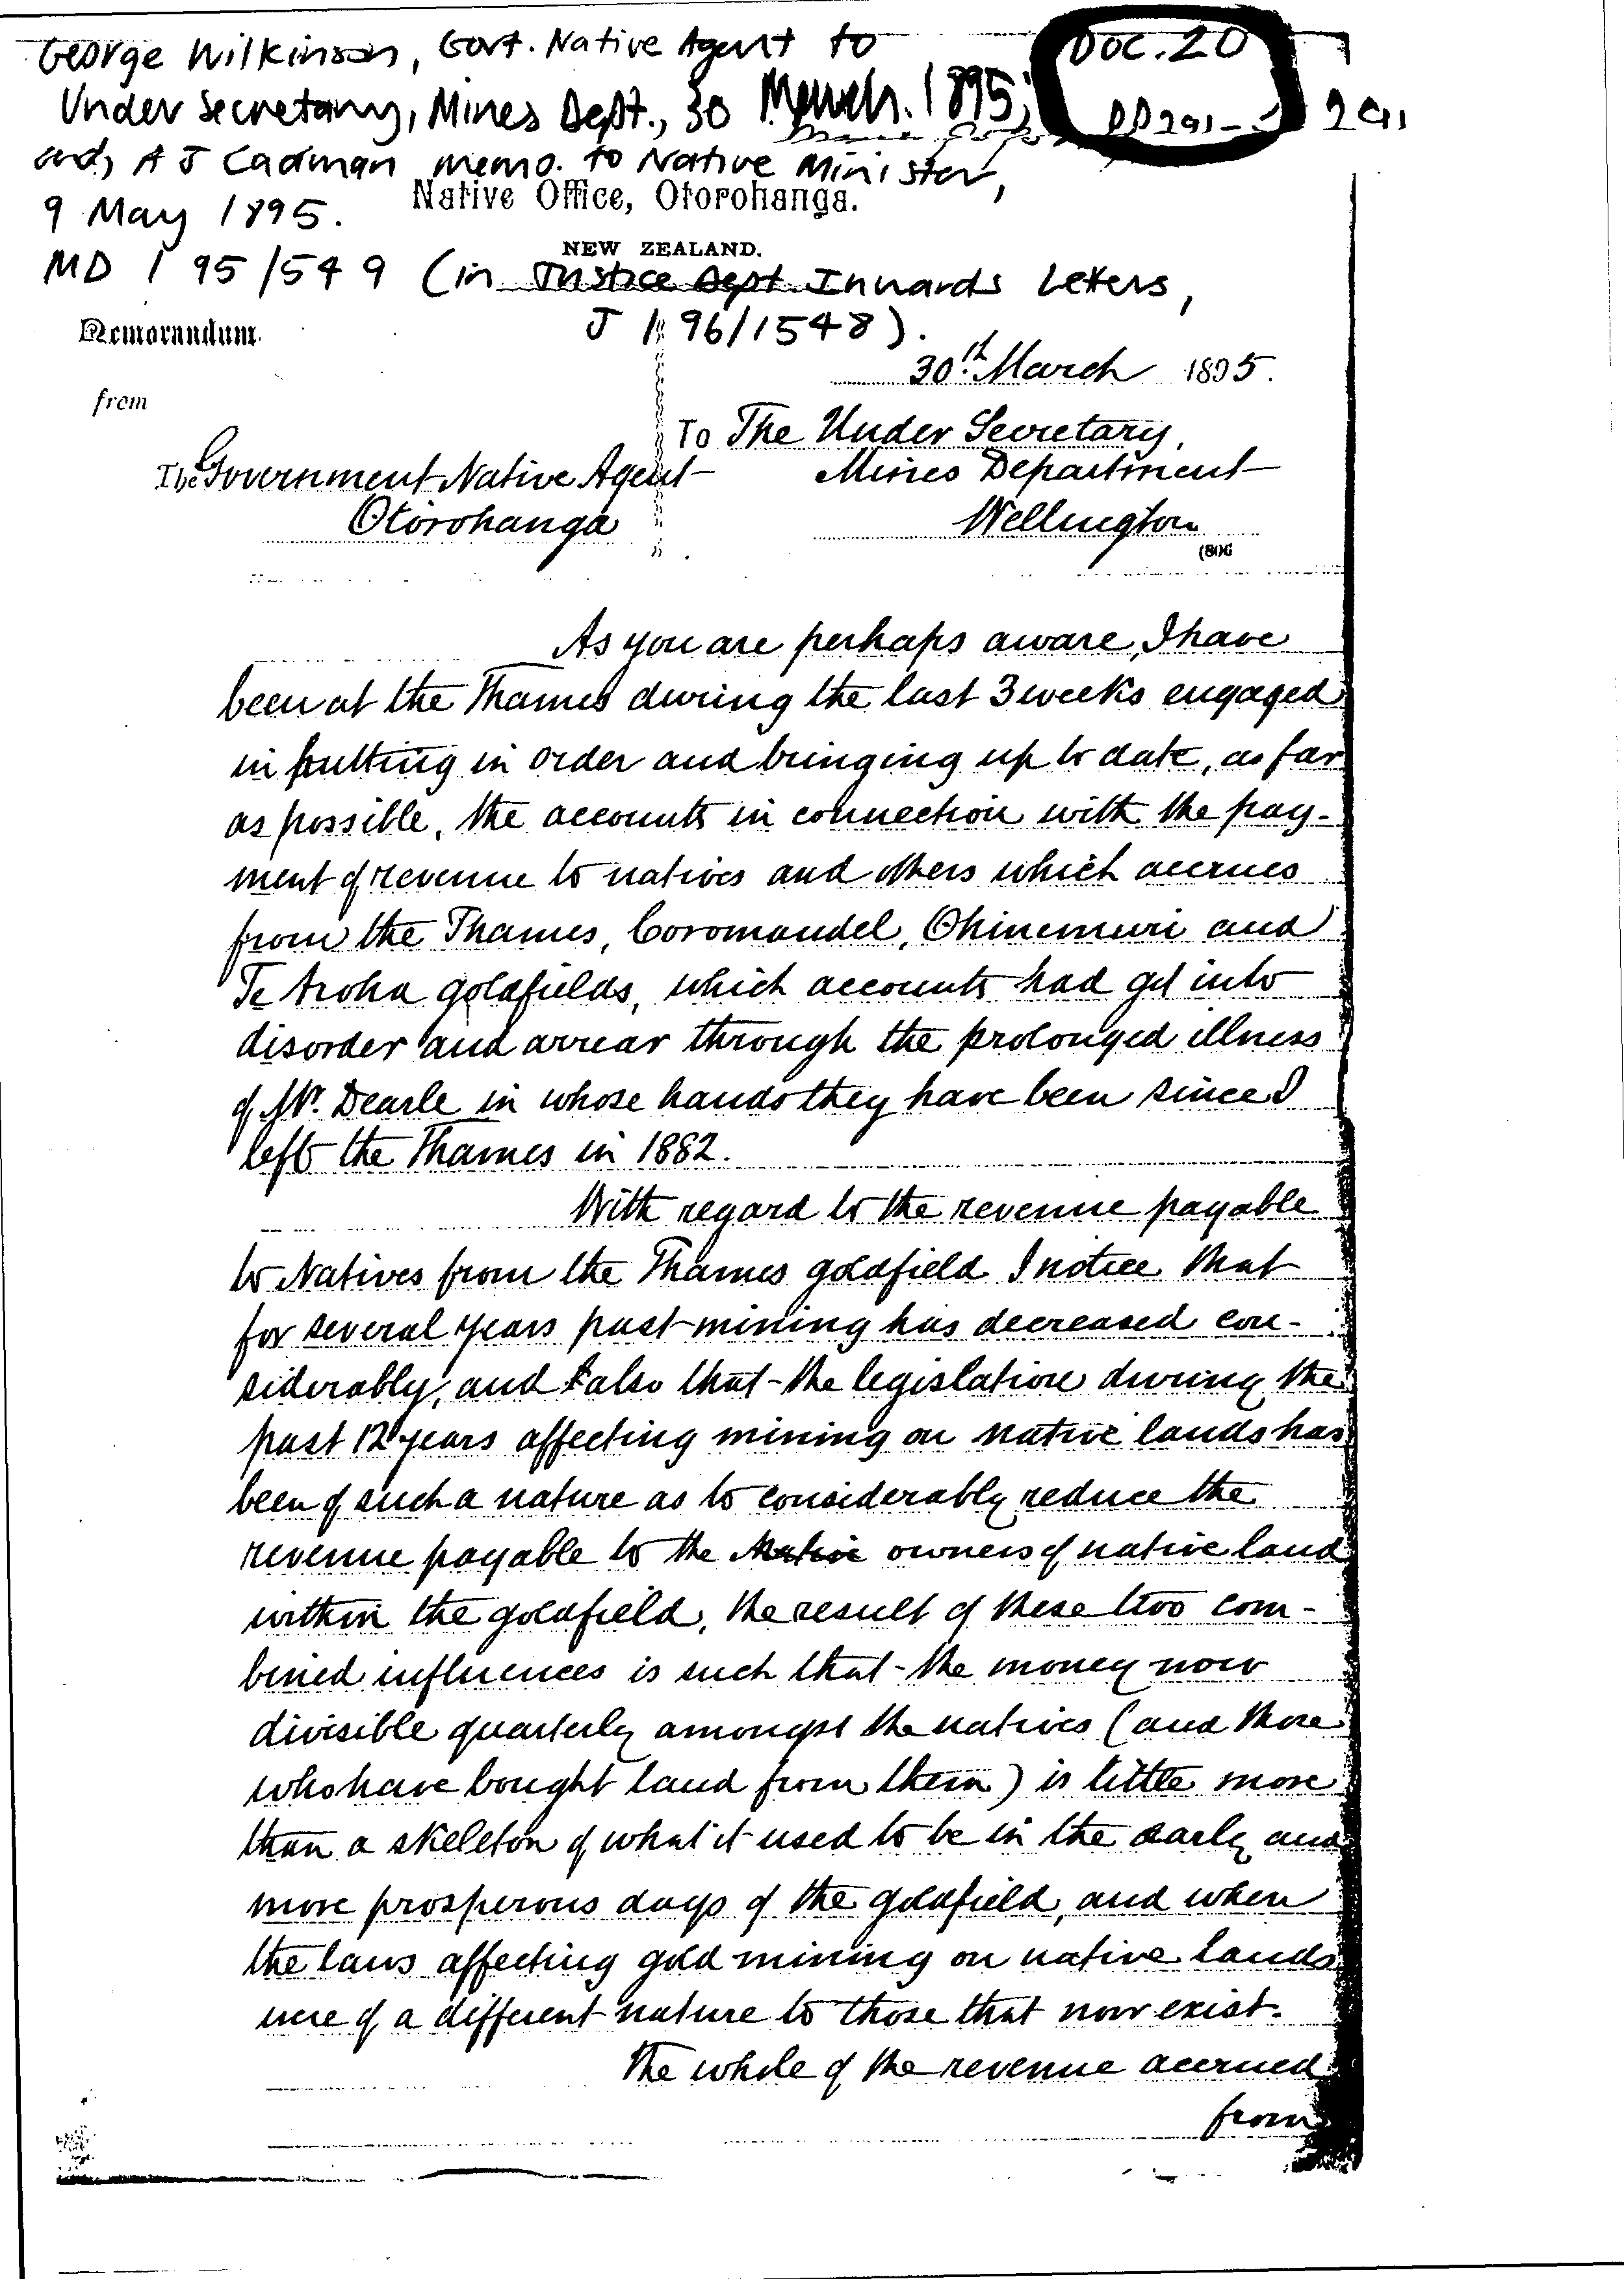 George Wilkinson, Govt. Native Agent to
Under Secretary, Mines Dept., 30 March. 1895;
and, A J Cadman memo. to Native Minister,
9 May 1895.
MD 1 95/549 (in Justice Dept. Inwards Letters,
J 1 96/1548).
Doc. 20
pp 291-
291
Native Office, Otorohanga.
NEW ZEALAND.
Memorandum
from
30th March 1895.
To The Under Secretary,
Mines Department
Wellington
The Government Native Agent
Otorohanga
As you are perhaps aware, I have
been at the Thames during the last 3 weeks engaged
in putting in order and bringing up to date, as far
as possible, the accounts in connection with the pay-
ment of revenue to natives and others which accrues
from the Thames, Coromandel, Ohinemuri and
Te Aroha goldfields, which accounts had got into
disorder and arrear through the prolonged illness
of Mr. Dearle in whose hands they have been since I
left the Thames in 1882.
With regard to the revenue payable
to Natives from the Thames goldfield I notice that
for several years past mining has decreased con-
siderably, and also that the legislation during the
past 12 years affecting mining on native lands has
been of such a nature as to considerably reduce the
revenue payable to the Native owners of native land
within the goldfield, the result of these two com-
bined influences is such that the money now
divisible quarterly amongst the natives (and those
who have bought land from them) is little more
than a skeleton of what it used to be in the early and
more prosperous days of the goldfield, and when
the laws affecting gold mining on native lands
were of a different nature to those that now exist.
The whole of the revenue accrued
from